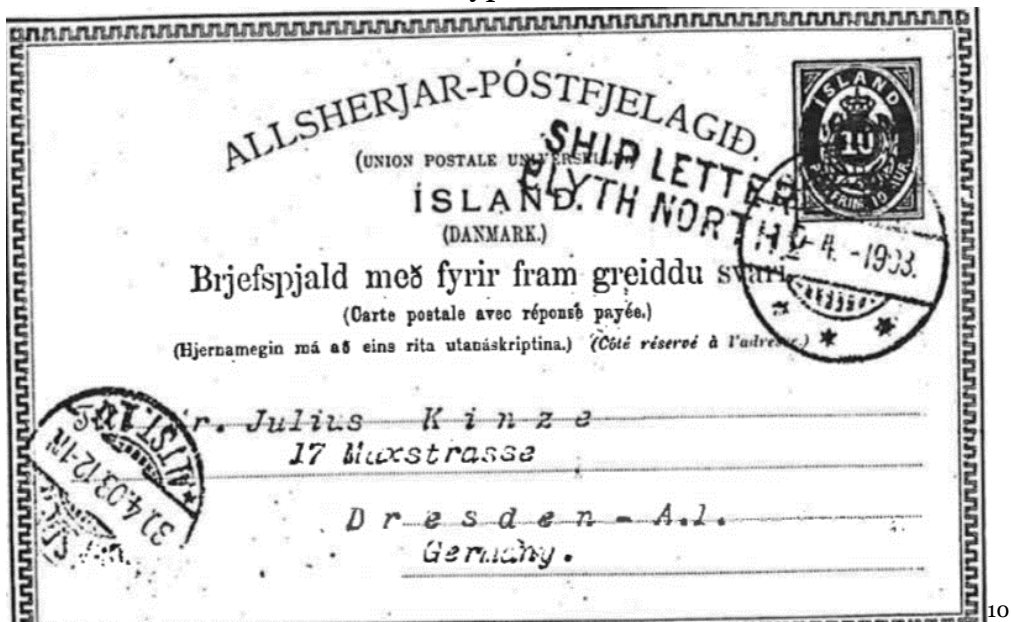 ALLSHERJAR-PÓSTFJELAGIÐ.
(UNION POSTALE UNIVERSELLE.)
ÍSLAND.
(DANMARK.)
Brjefspjald með fyrir fram greiddu svari.
(Carte postale avec réponse payée.)
(Hjernamegin má að eins rita utanáskriptina.) (Côté réservé à l'adresse.)
SHIP LETTER
BLYTH NORTH
ÍSLAND
10
-4.-1903.
ALTST. 1
30.4.03.12-1N
r. Julius Kinze
17 Muxstrasse
Dresden - A.1.
Germany.
10